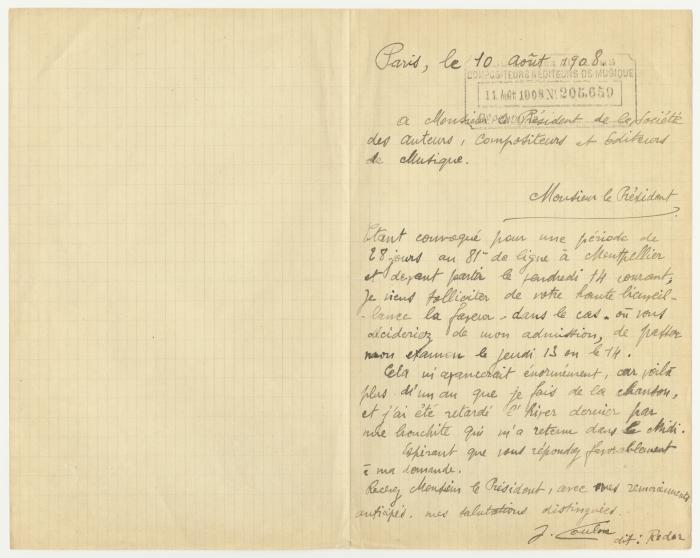 Paris, le 10 août 1908.
COMPOSITEURS & EDITEURS DE MUSIQUE
11 AOU 1908 No 205.659
a Monsieur le Président de la Société
des auteurs, Compositeurs et Editeurs
de Musique.
Monsieur le Président
Etant convoqué pour une période de
28 jours au 81e de ligne à Montpellier
et devant partir le vendredi 14 courant,
Je viens solliciter de votre haute bienveil-
-lance la faveur - dans le cas où vous
décideriez de mon admission, de passer
mon examen le jeudi 13 ou le 14.
Cela m'avancerait énormément, car voilà
plus d'un an que je fais de la chanson,
et j'ai été retardé l'hiver dernier par
une bronchite qui m'a retenu dans le Midi.
Espérant que vous répondrez favorablement
à ma demande.
Recevez Monsieur le Président, avec mes remerciements
anticipés, mes salutations distinguées.
J. Coulon dit: Rodor